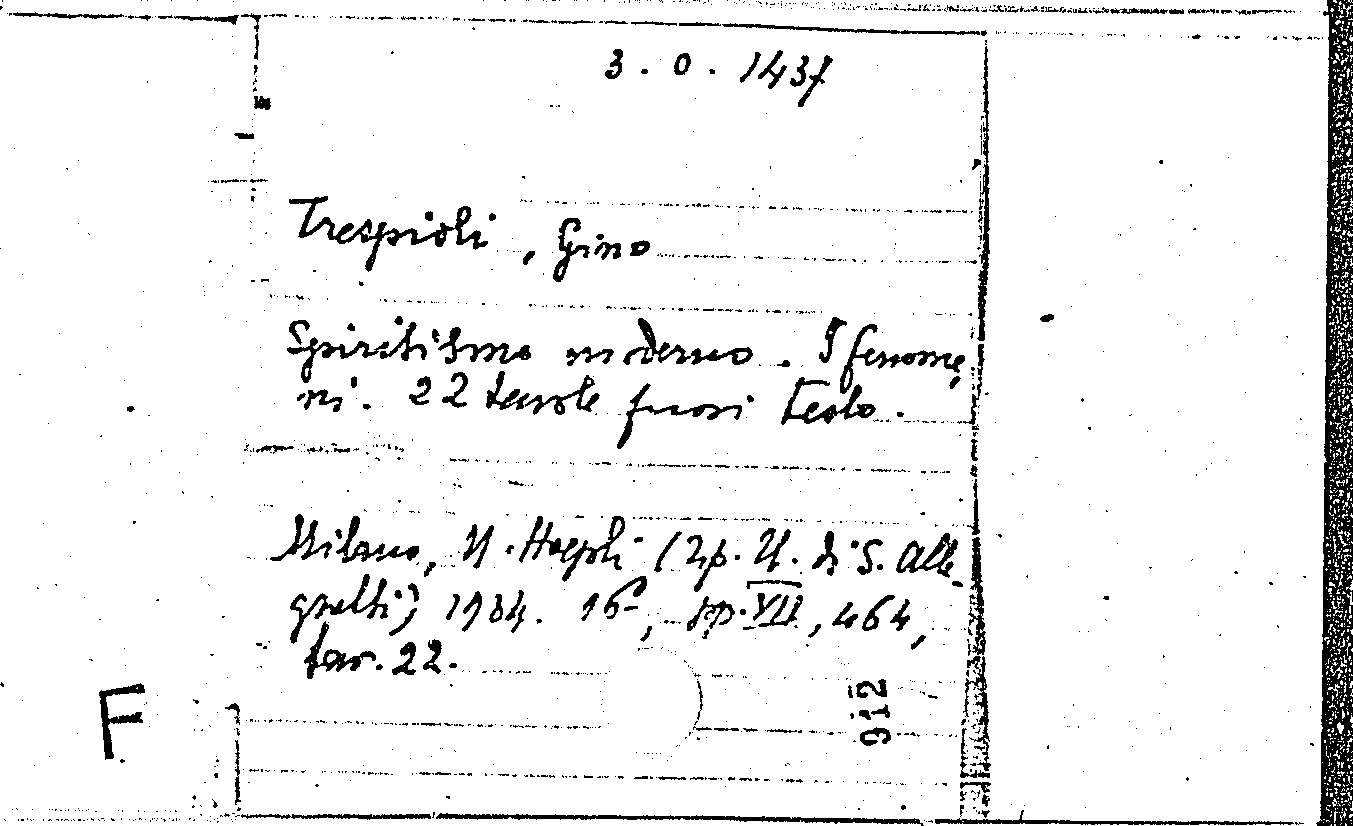 3. 0. 1437
Trespioli, Gino
Spiritismo moderno. I fenome
ni. 22 tavole fuori testo.
Milano, U. Hoepli (Tip. U. di S. Alle
gretti) 1934. 16°, pp. VII, 464,
tav. 22.
912
F